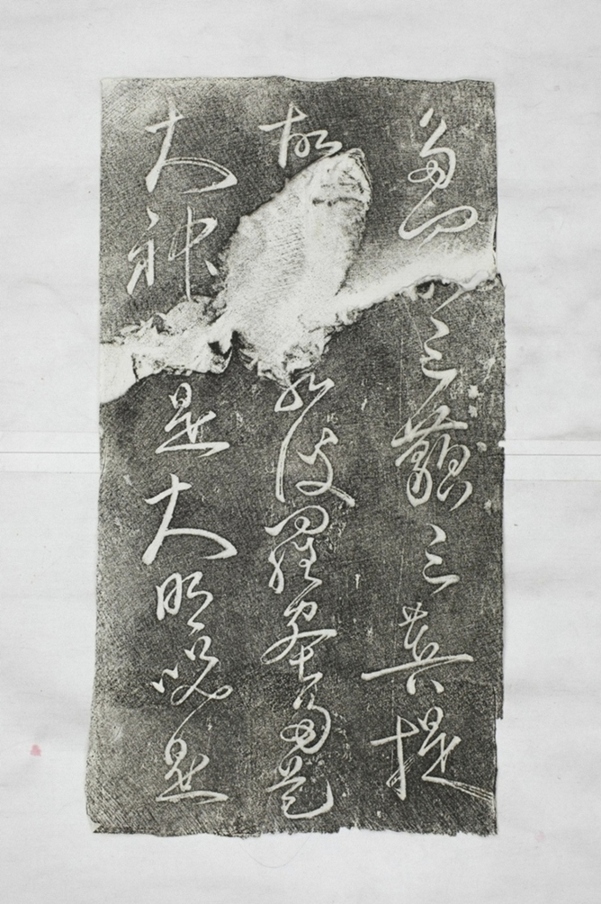 多羅三藐三菩提
故若波羅蜜多是
大神是大明咒是